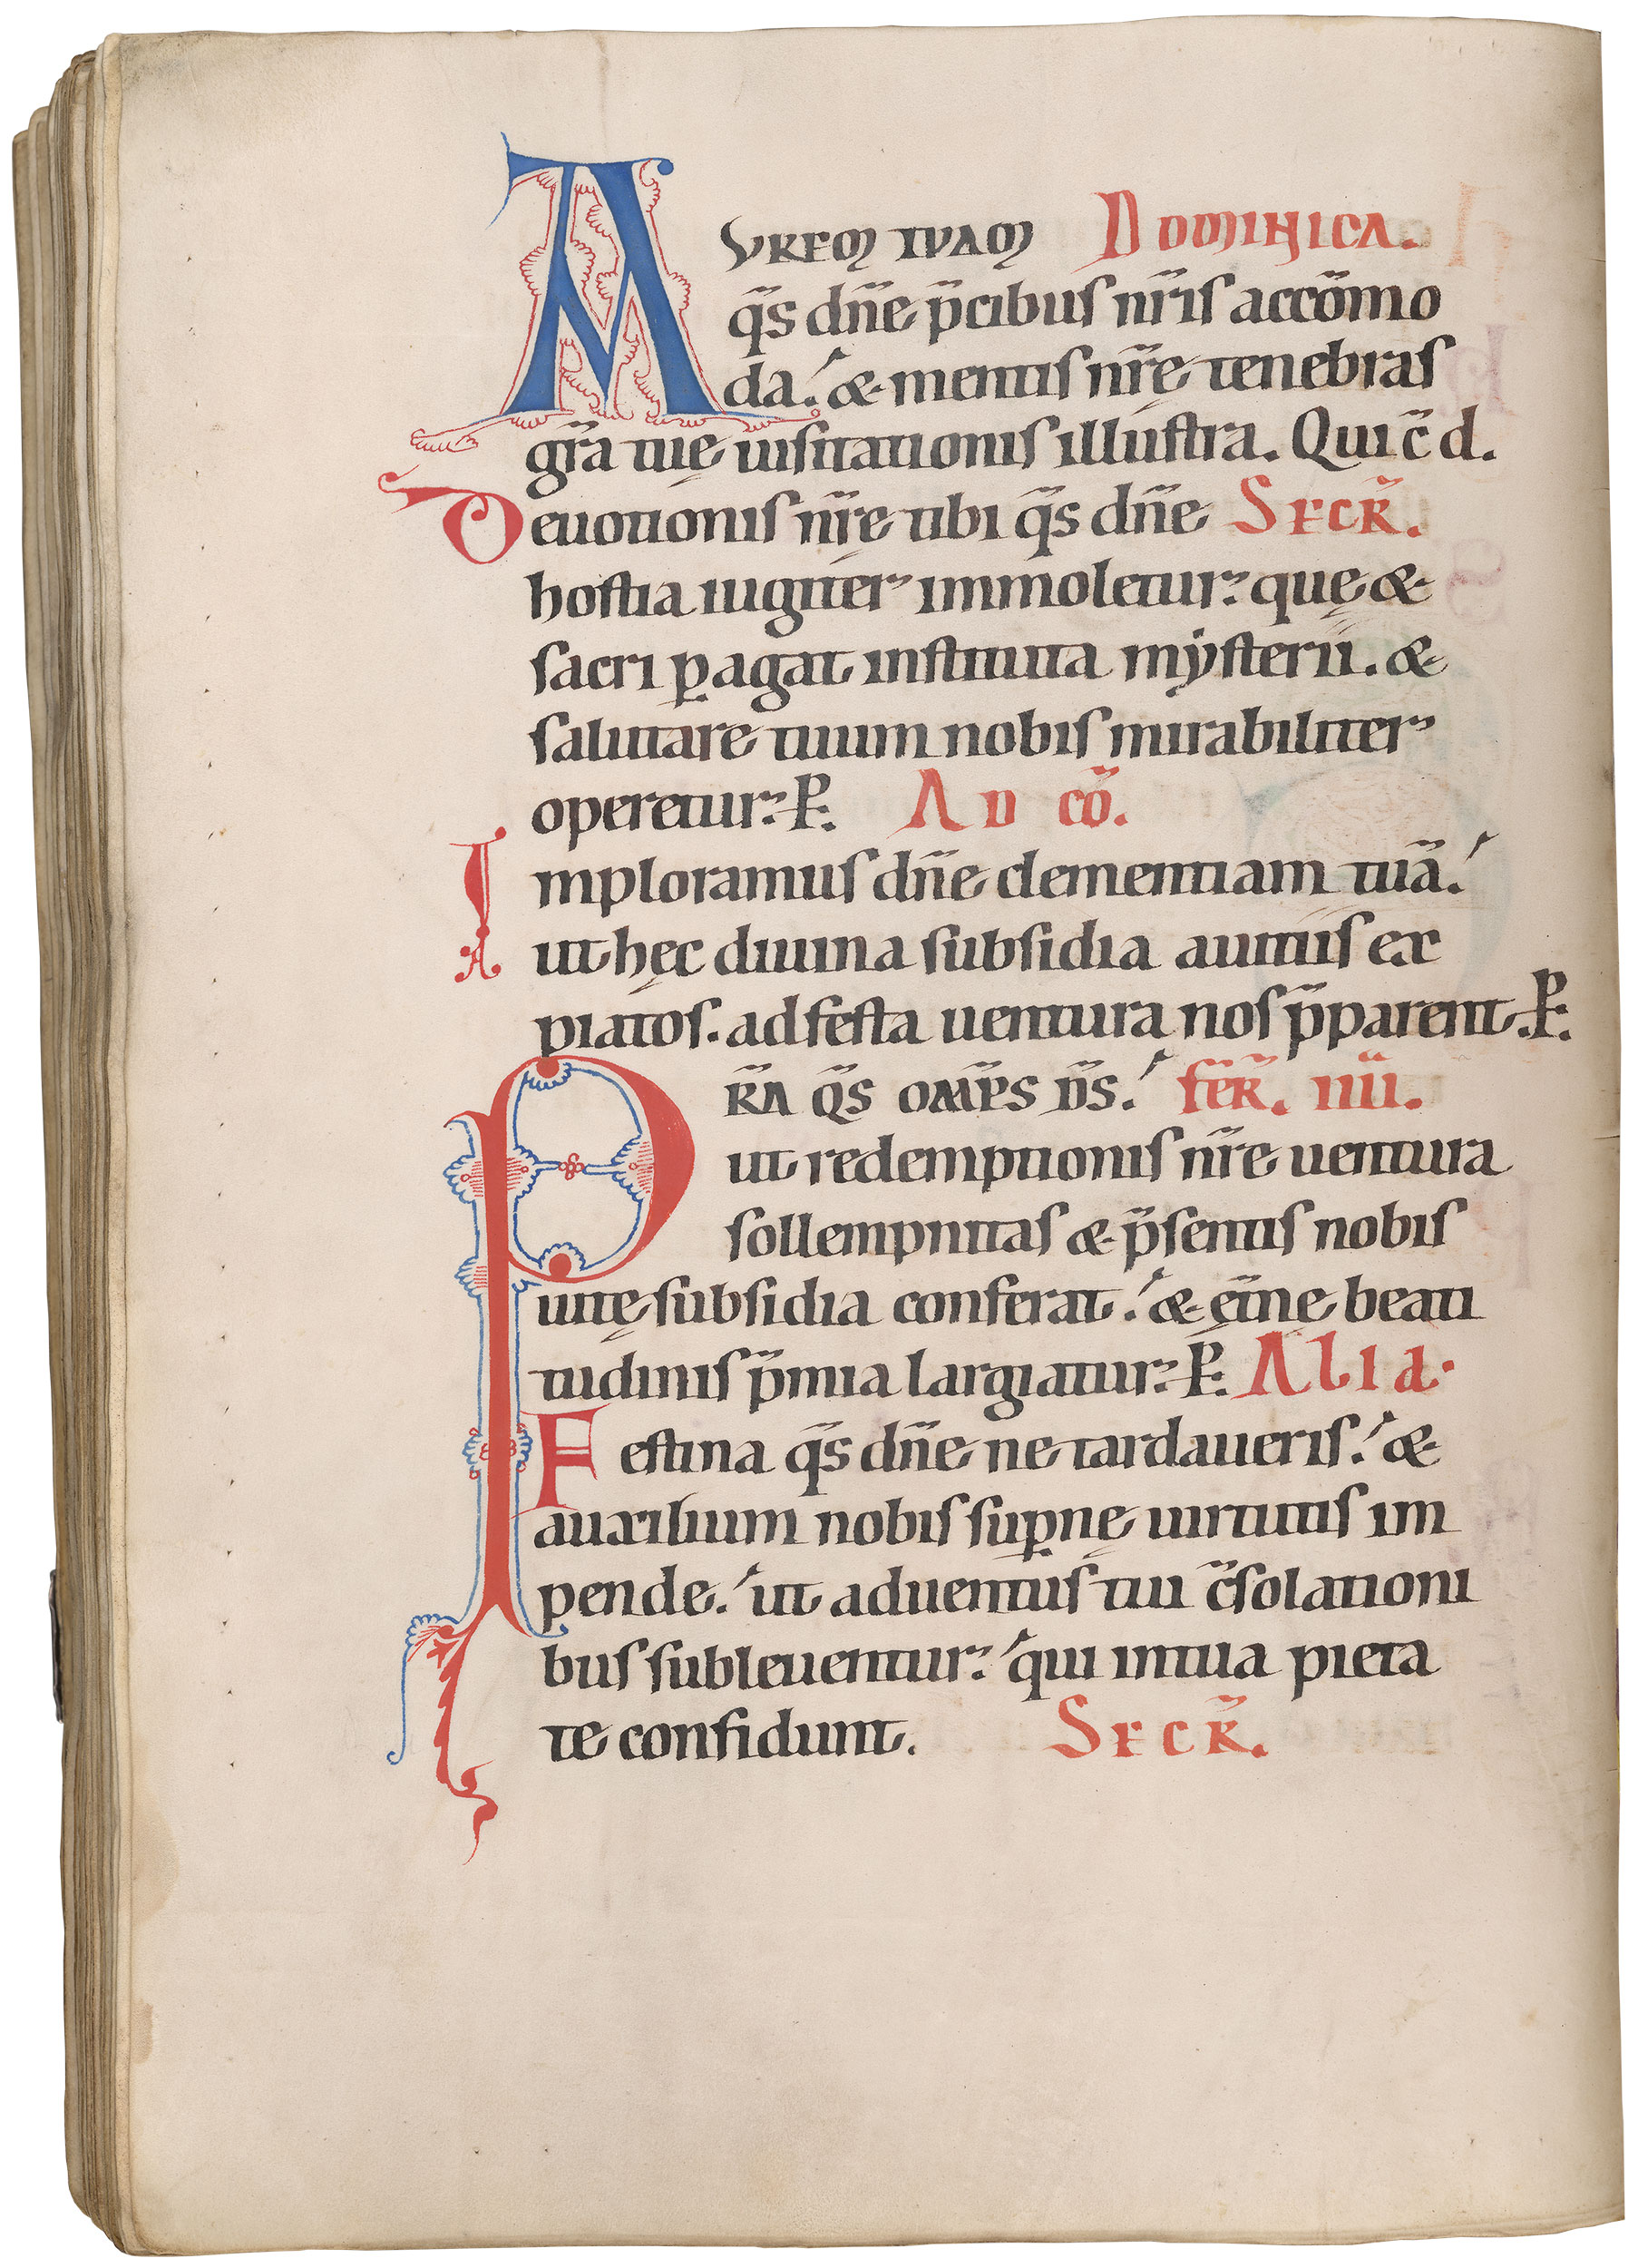 AUREM TUAM DOMINICA.
q̄s dn̄e p̄cibus nr̄is accōmo
da.' & mentis nr̄ę tenebras
gr̄a tuę uisitationis illustra. Qui c̄ d.
Deuotionis nr̄ę tibi q̄s dn̄e SECR̄.
hostia iugiter immoletur: quę &
sacri ꝑagat instituta mẏsterii. &
salutare tuum nobis mirabiliter
operetur: P. AD cō.
Imploramus dn̄e clementiam tuā.'
ut hęc diuina subsidia auitiis ex
piatos. ad festa uentura nos p̄parent. P.
PR̄A Q̄S OMP̄S D̄S.' fēR̄. IIII.
ut redemptionis nr̄e uentura
sollempnitas & p̄sentis nobis
uitę subsidia conferat.' & ęt̄ne beati
tudinis p̄mia largiatur: P. ALIA.
Festina q̄s dn̄e ne tardaueris.' &
auxilium nobis suꝑnę uirtutis im
pende.' ut aduentus tui c̄solationi
bus subleuentur:' qui intua pieta
te confidunt. SECR̄.